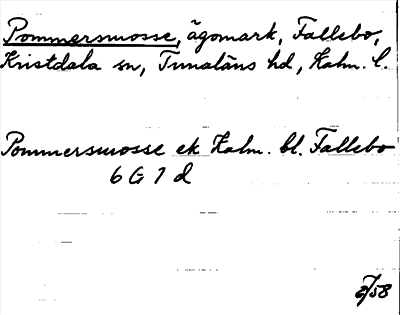 Pommersmosse, ägomark, Fallebo,
Kristdala sn, Tunaläns hd, Kalm. l.
Pommersmosse ek Kalm. bl. Fallebo
6 G 7 d
/58